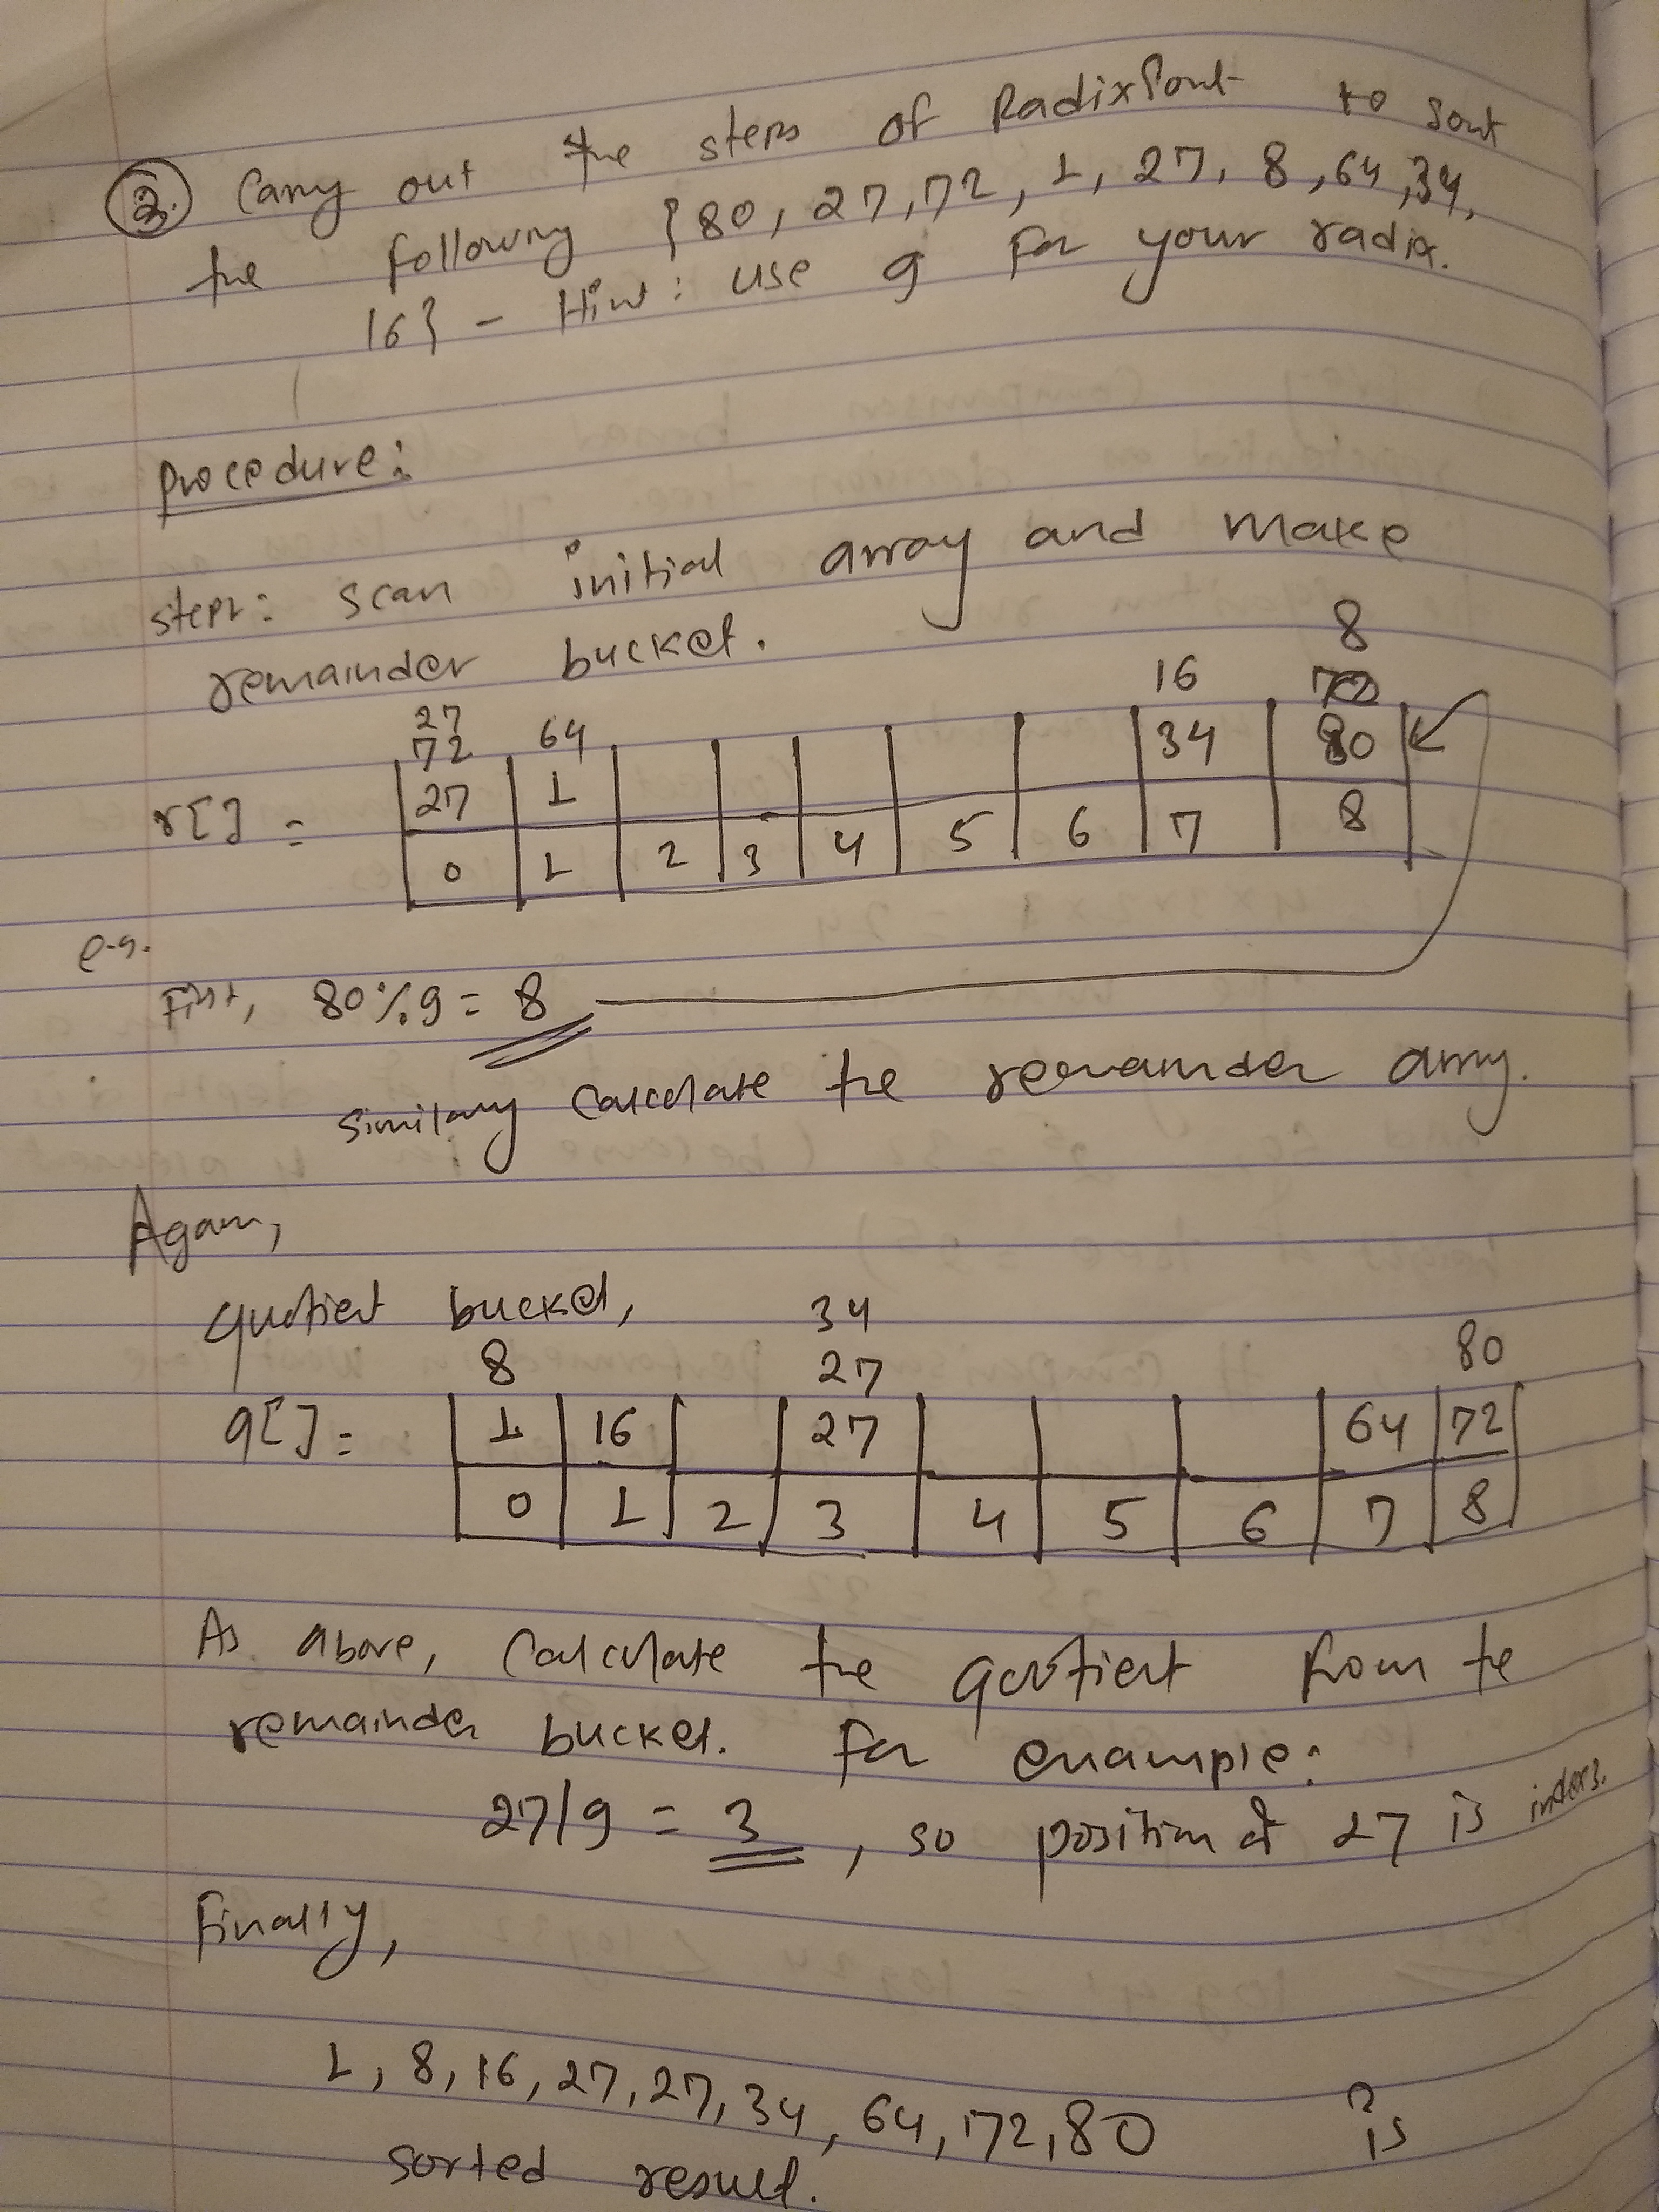 3. Carry out the steps of RadixSort to sort
the following {80, 27, 72, 1, 27, 8, 64, 34,
16} - Hint: use 9 for your radix.
Procedure:
step1: scan initial array and make
remainder bucket.
8
16 72
27 64 34 80
72 1
27
r[] =
0 1 2 3 4 5 6 7 8
e.g.
First, 80%9 = 8
Similary calculate the remainder array.
Again,
quotient bucket,
34
8 27 80
q[] = 1 16 27 64 72
0 1 2 3 4 5 6 7 8
As above, calculate the quotient from the
remainder bucket. For example:
27/9 = 3, so position of 27 is index 3.
Finally,
1, 8, 16, 27, 27, 34, 64, 72, 80 is
sorted result.